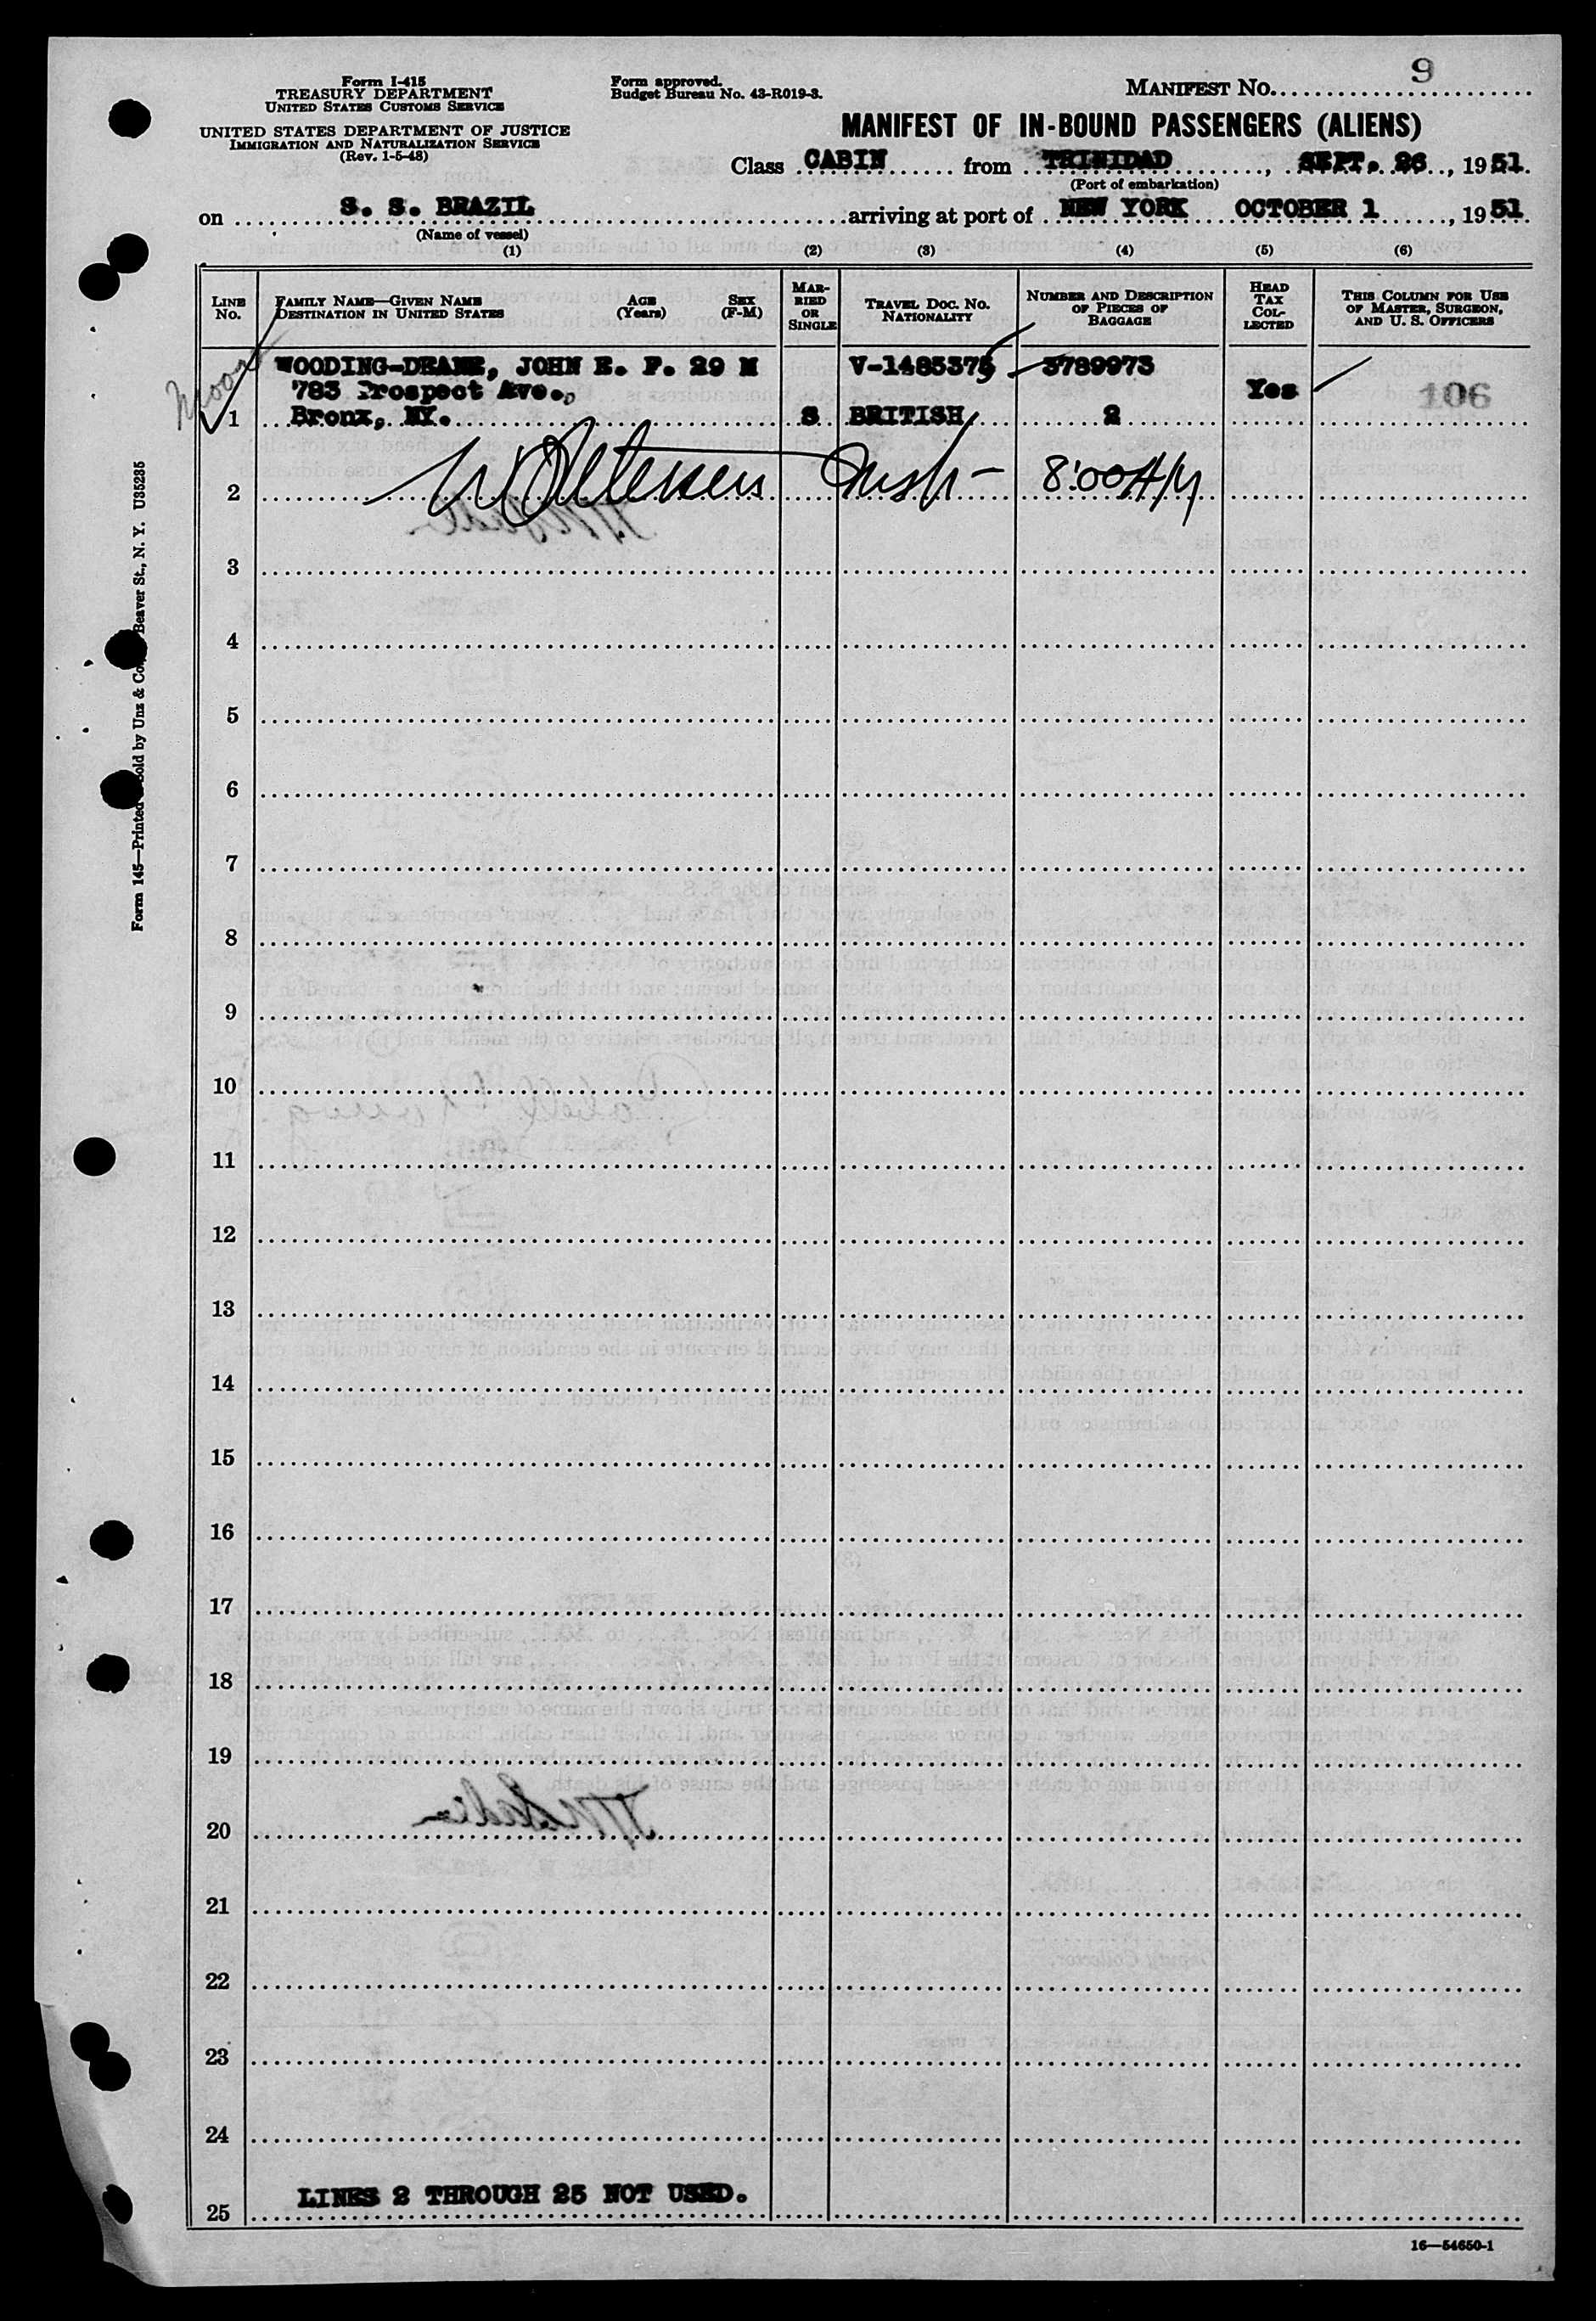 Form I-415
TREASURY DEPARTMENT
UNITED STATES CUSTOMS SERVICE
UNITED STATES DEPARTMENT OF JUSTICE
IMMIGRATION AND NATURALIZATION SERVICE
(Rev. 1-5-48)
Form approved.
Budget Bureau No. 43-R019-3.
MANIFEST NO. 9
MANIFEST OF IN-BOUND PASSENGERS (ALIENS)
Class CABIN from TRINIDAD, SEPT. 26, 1951.
(Port of embarkation)
on S. S. BRAZIL arriving at port of NEW YORK OCTOBER 1, 1951
(Name of vessel)
(1) (2) (3) (4) (5) (6)
LINE No.
FAMILY NAME—GIVEN NAME AGE (Years) SEX (F-M)
DESTINATION IN UNITED STATES
MARRIED OR SINGLE
TRAVEL DOC. NO. NATIONALITY
NUMBER AND DESCRIPTION OF PIECES OF BAGGAGE
HEAD TAX COLLECTED
THIS COLUMN FOR USE OF MASTER, SURGEON, AND U. S. OFFICERS
WOODING-DEANE, JOHN E. F. 29 M V-1485375 3789973
783 Prospect Ave., Yes 106
1 Bronx, NY. S BRITISH 2
2 8:00 AM
3
4
5
6
7
8
9
10
11
12
13
14
15
16
17
18
19
20
21
22
23
24
LINES 2 THROUGH 25 NOT USED.
25
16—54650-1
Form 145—Printed Sold by Unz & Co., Beaver St., N. Y. U35235